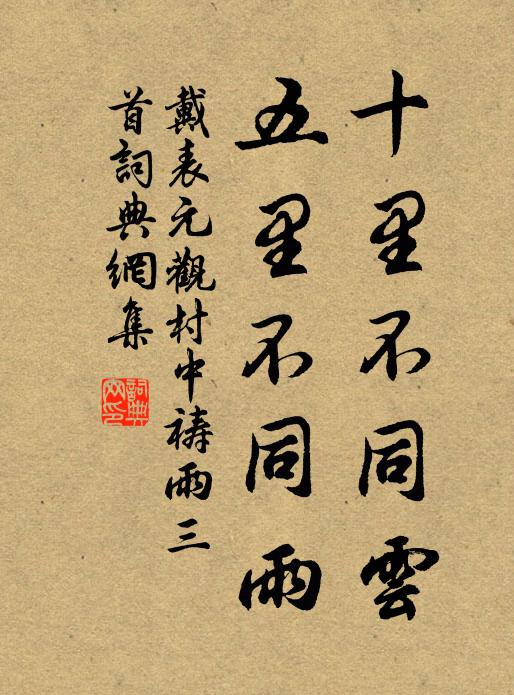 十里不同雲
五里不同雨
戴表元觀村中禱雨三
首詞典網集
詞典網印